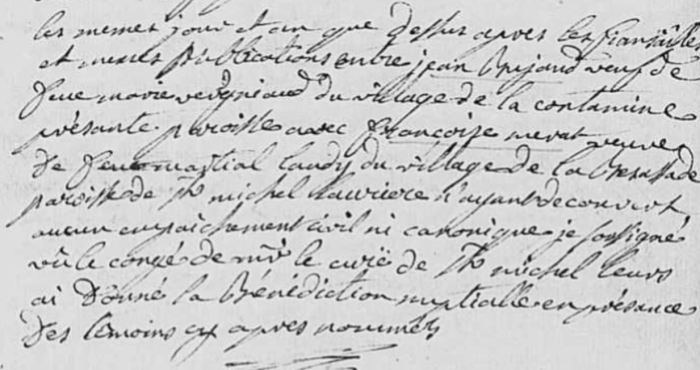 les memes jour et an que dessus apres les fiançailles
et meme publications entre jean veuf de
feue marie vergniaud du village de la contamine
présante paroisse avec françoise merat veuve
de feu martial laudy du village de la
paroisse de St michel lauriere n'ayant decouvert
aucun empaichement civil ni canonique je soussigné
vû le congé de mr le curé de St michel leurs
ai donné la Bénédiction nuptialle en présance
des temoins cy apres nommés